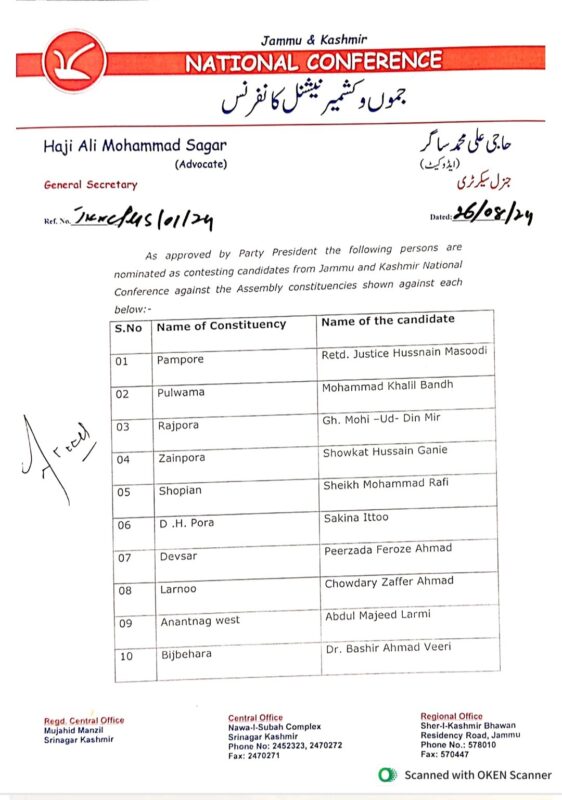 Jammu & Kashmir
NATIONAL CONFERENCE
جموں و کشمیر نیشنل کانفرنس
Haji Ali Mohammad Sagar
(Advocate)
General Secretary
حاجی علی محمد ساگر
(ایڈوکیٹ)
جنرل سیکرٹری
Ref. No. JKNC/MS/01/24
Dated: 26/08/24
As approved by Party President the following persons are
nominated as contesting candidates from Jammu and Kashmir National
Conference against the Assembly constituencies shown against each
below:-
S.No Name of Constituency Name of the candidate
01 Pampore Retd. Justice Hussnain Masoodi
02 Pulwama Mohammad Khalil Bandh
03 Rajpora Gh. Mohi –Ud- Din Mir
04 Zainpora Showkat Hussain Ganie
05 Shopian Sheikh Mohammad Rafi
06 D .H. Pora Sakina Ittoo
07 Devsar Peerzada Feroze Ahmad
08 Larnoo Chowdary Zaffer Ahmad
09 Anantnag west Abdul Majeed Larmi
10 Bijbehara Dr. Bashir Ahmad Veeri
Regd. Central Office
Mujahid Manzil
Srinagar Kashmir
Central Office
Nawa-I-Subah Complex
Srinagar Kashmir
Phone No: 2452323, 2470272
Fax: 2470271
Regional Office
Sher-I-Kashmir Bhawan
Residency Road, Jammu
Phone No.: 578010
Fax: 570447
Scanned with OKEN Scanner